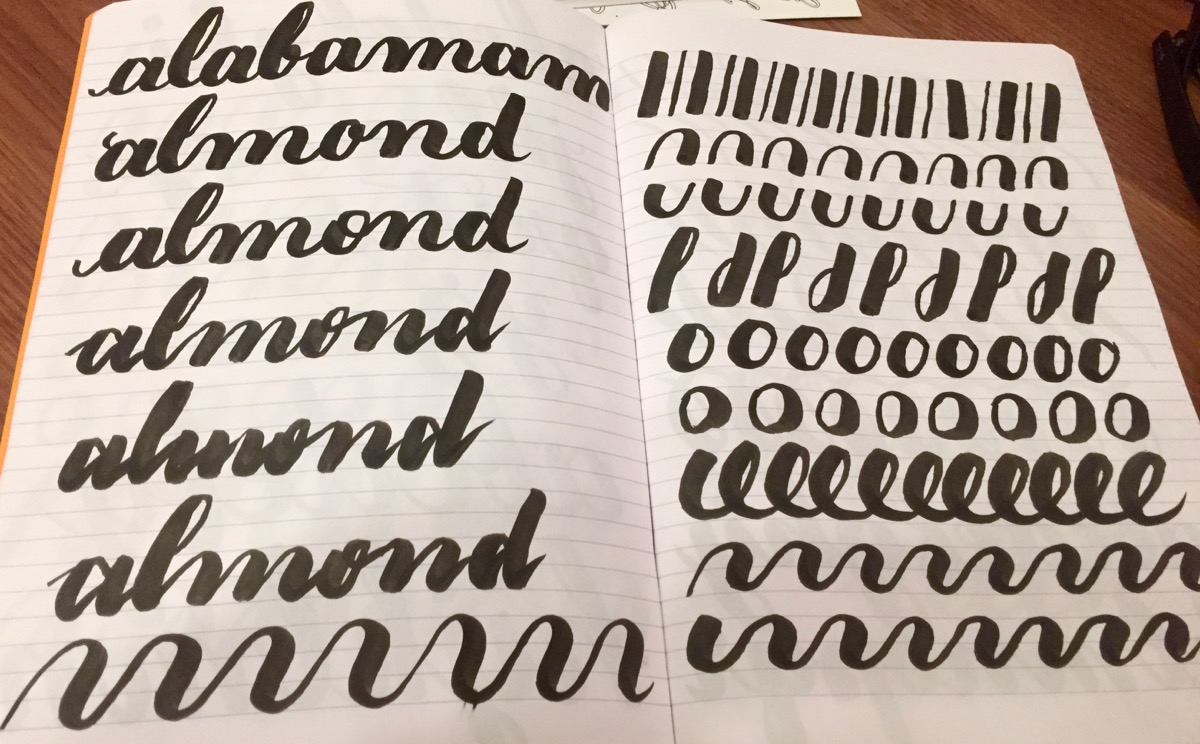 alabamam
almond
almond
almond
almond
almond